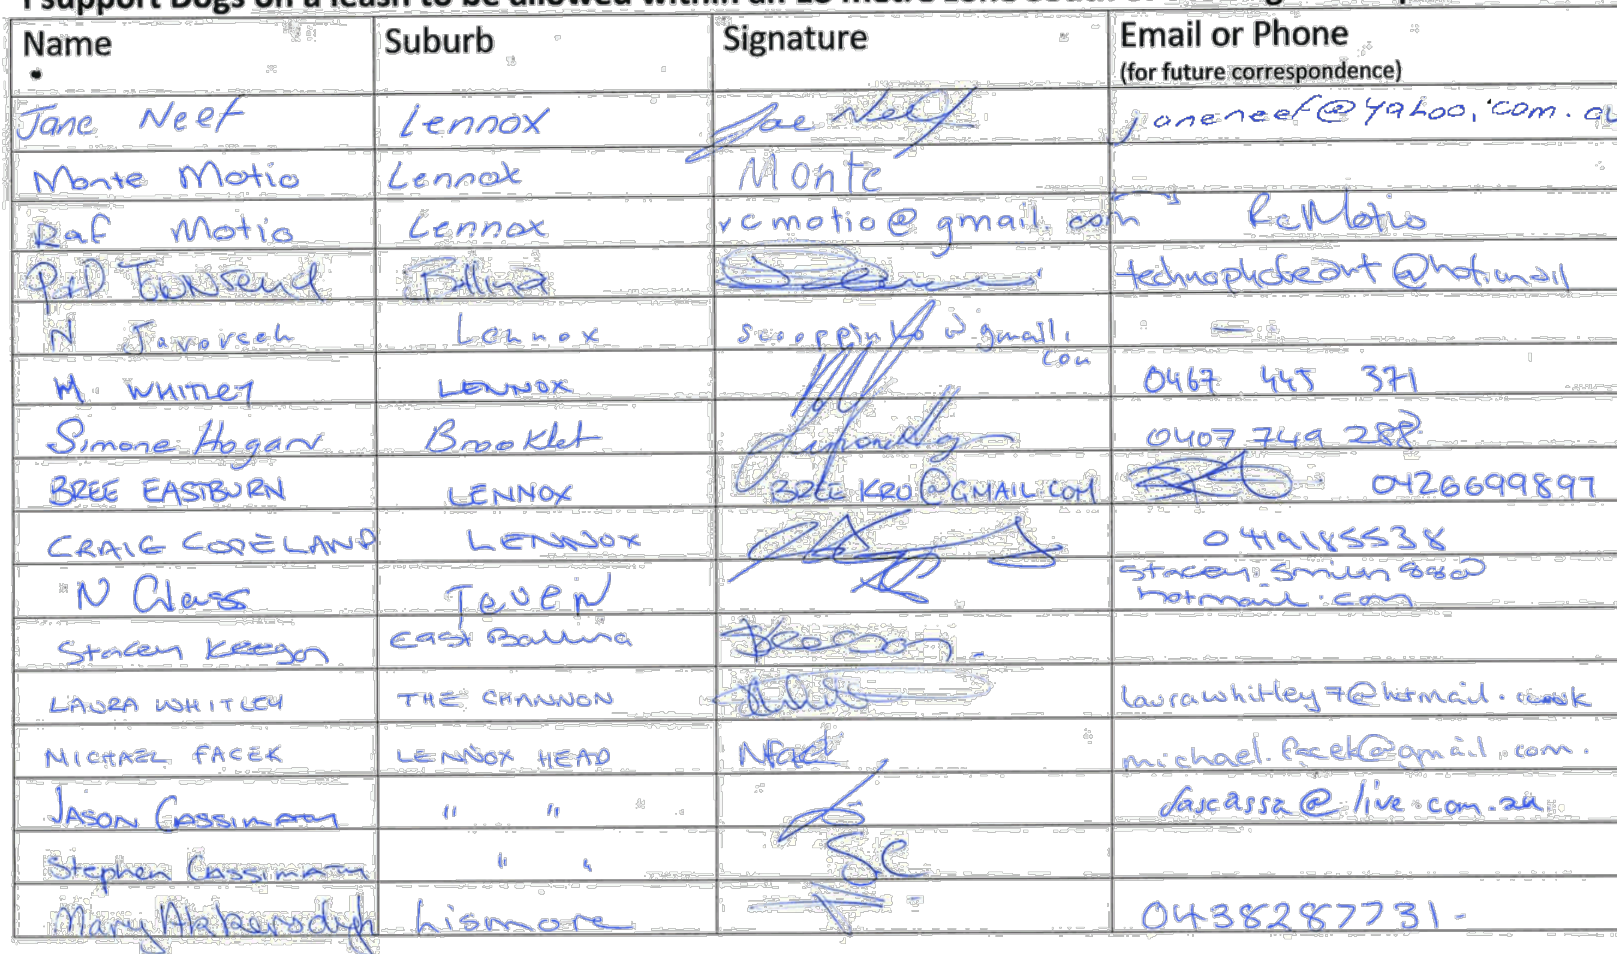 I support Dogs on a leash to be allowed within an
Name Suburb Signature Email or Phone
(for future correspondence)
Jane Neef Lennox Jae Neef janeneef@yahoo.com.au
Monte Motio Lennox Monte
Raf Motio Lennox rcmotio@gmail.com RcMotio
P+D Townsend Ballina @hotmail
N Lennox gmail.
com
M WHITLEY LENNOX 0467 445 371
Simone Hogan Brooklet 0407 749 288
BREE EASTBURN LENNOX BREEKRO@GMAIL.COM 0426699897
CRAIG COPELAND LENNOX 0419185538
N Glass TEVEN hotmail.com
Stacey Keegan East Ballina
LAURA WHITLEY THE CHANNON laurawhitley7@hotmail.
MICHAEL FACEK LENNOX HEAD MFacek michael.facek@gmail.com.
JASON CASSIMATY " " jascassa@live.com.au
Stephen Cassimaty " " SC
Mary Lismore 0438287731-